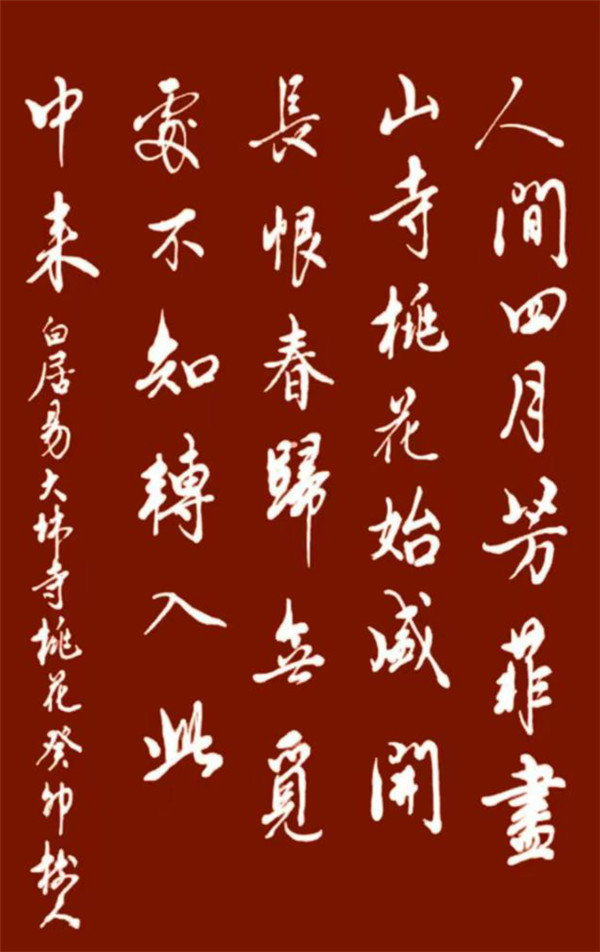 人間四月芳菲盡
山寺桃花始盛開
長恨春歸無覓
處不知轉入此
中来
白居易大林寺桃花癸卯樹人